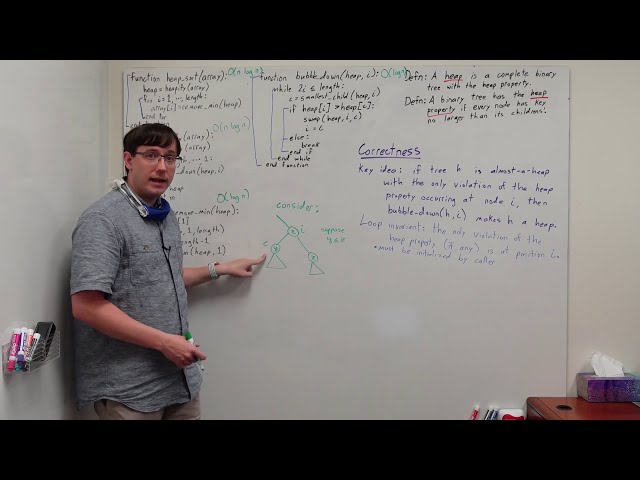 function heap_sort(array): O(n log n)
heap = heapify(array)
for i = 1, ..., length:
array[i] = remove_min(heap)
end for
(array):
(array): O(n log n)
O(log n)
move-min(heap):
1)
1, length)
length-1
(heap, 1)
function bubble_down(heap, i): O(log n)
while 2i ≤ length:
c = smallest_child(heap, i)
if heap[i] > heap[c]:
swap(heap, i, c)
i = c
else:
break
end if
end while
end function
consider:
i
suppose
c
y
Defn: A heap is a complete binary
tree with the heap property.
Defn: A binary tree has the heap
property if every node has key
no larger than its childrens'.
Correctness
Key idea: if tree h is almost-a-heap
with the only violation of the heap
property occurring at node i, then
bubble-down(h, i) makes h a heap.
Loop invariant: the only violation of the
heap property (if any) is at position i.
*must be initialized by caller